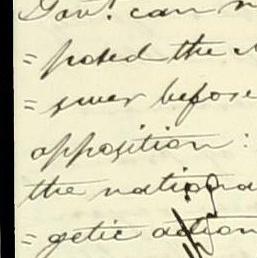 Govt. can
= posed the
= swer before
opposition:
the nationa
= getic action